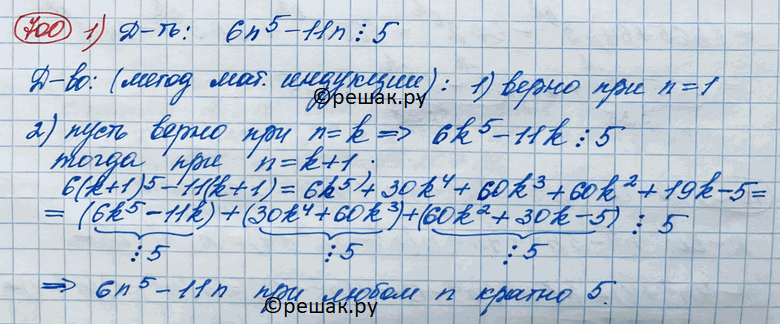 700 1) Д-ть: 6n⁵-11n ⋮ 5
Д-во: (метод мат. индукции): 1) верно при n=1
©решак.ру
2) пусть верно при n=k => 6k⁵-11k ⋮ 5
тогда при n=k+1:
6(k+1)⁵-11(k+1) = 6k⁵+30k⁴+60k³+60k²+19k-5=
= (6k⁵-11k)+(30k⁴+60k³)+(60k²+30k-5) ⋮ 5
⋮5 ⋮5 ⋮5
=> 6n⁵-11n при любом n кратно 5.
©решак.ру